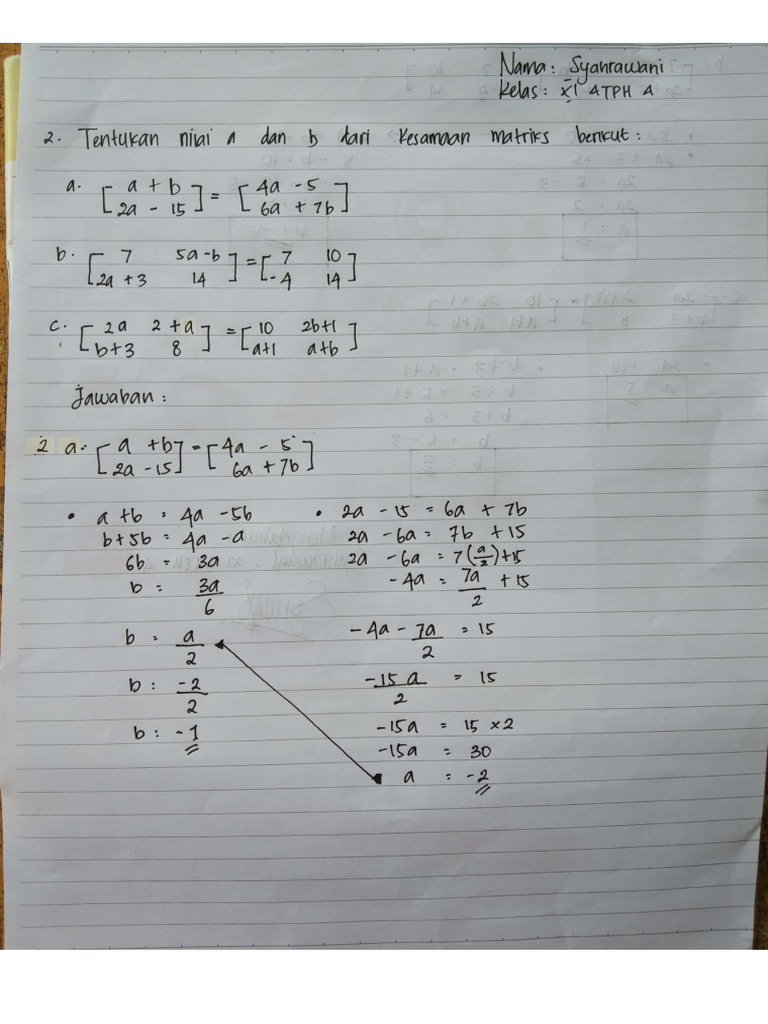 Nama: Syahrawani
Kelas: XI ATPH A
2. Tentukan nilai a dan b dari kesamaan matriks berikut:
a. [ a + b ] = [ 4a - 5 ]
[ 2a - 15 ] [ 6a + 7b ]
b. [ 7 5a-b ] = [ 7 10 ]
[ 2a + 3 14 ] [ -4 14 ]
c. [ 2a 2 + a ] = [ 10 2b+1 ]
[ b+3 8 ] [ a+1 a+b ]
Jawaban:
2 a. [ a + b ] = [ 4a - 5 ]
[ 2a - 15 ] [ 6a + 7b ]
• a + b = 4a - 5b
b + 5b = 4a - a
6b = 3a
b = 3a/6
b = a/2
b = -2/2
b = -1
• 2a - 15 = 6a + 7b
2a - 6a = 7b + 15
2a - 6a = 7(a/2) + 15
-4a = 7a/2 + 15
-4a - 7a/2 = 15
-15a/2 = 15
-15a = 15 × 2
-15a = 30
a = -2